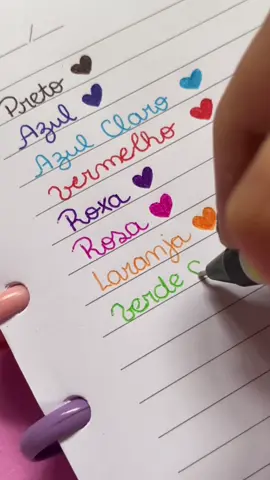 Preto
Azul
Azul Claro
Vermelho
Roxa
Rosa
Laranja
Verde